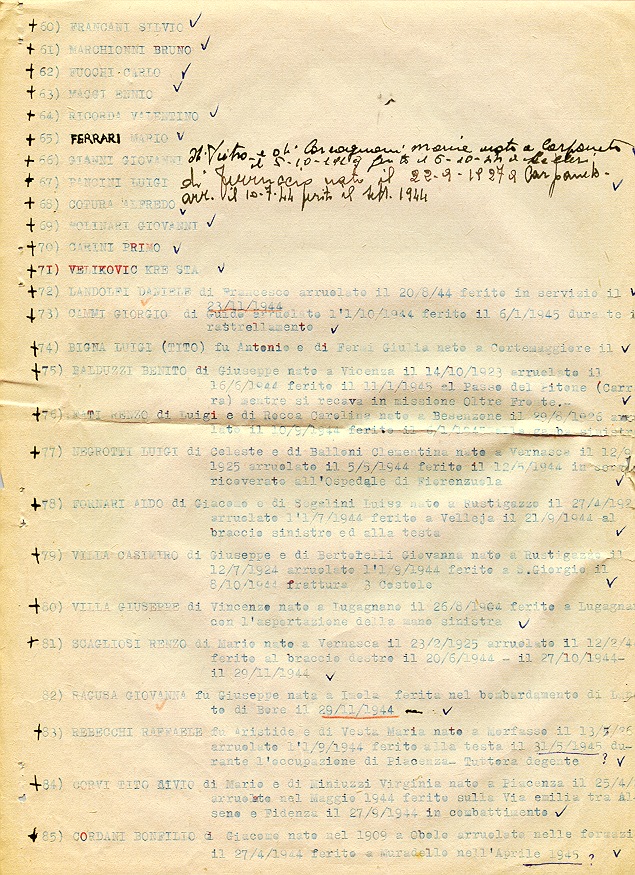 60) FRANCANI SILVIO
61) MARCHIONNI BRUNO
62) FUOCHI CARLO
63) MAGGI ENNIO
64) RICORDA VALENTINO
65) FERRARI MARIO
66) GIANNI GIOVANNI
il 5-10-1919 ferito il 6-10-44
67) PANCINI LUIGI
nato il 22-9-1927 a Carpaneto
68) COTURA ALFREDO
arr. il 10-7-44 ferito il sett. 1944
69) POLINARI GIOVANNI
70) CARINI PRIMO
71) VELIKOVIC KRESTA
72) LANDOLFI DANIELE di Francesco arruolato il 20/8/44 ferito in servizio il
23/11/1944
73) CAMMI GIORGIO di Guido arruolato l'1/10/1944 ferito il 6/1/1945 durante
rastrellamento
74) BIGNA LUIGI (TITO) fu Antonio e di Fermi Giulia nato a Cortemaggiore il
75) BALDUZZI BENITO di Giuseppe nato a Vicenza il 14/10/1923 arruolato il
16/5/1944 ferito il 11/1/1945 al Passo del Pitone (Carr
ra) mentre si recava in missione Oltre Fronte.
76) RENZO di Luigi e di Rocca Carolina nato a Besenzone il 29/8/1926
lato il 10/9/1944 ferito il
77) NEGROTTI LUIGI di Celeste e di Balloni Clementina nato a Vernasca il 12/9
1925 arruolato il 5/5/1944 ferito il 12/5/1944 in
ricoverato all'Ospedale di Fiorenzuola
78) FORNARI ALDO di Giacomo e di Segalini Luisa nato a Rustigazzo il 27/4/192
arruolato l'1/7/1944 ferito a Velleja il 21/9/1944 al
braccio sinistro ed alla testa
79) VILLA CASIMIRO di Giuseppe e di Bertorelli Giovanna nato a Rustigazzo il
12/7/1924 arruolato l'1/9/1944 ferito a S.Giorgio il
8/10/1944 frattura 3 Costole
80) VILLA GIUSEPPE di Vincenzo nato a Lugagnano il 26/8/1904 ferito a Lugagna
con l'asportazione della mano sinistra
81) SCAGLIOSI RENZO di Mario nato a Vernasca il 23/2/1925 arruolato il 12/2/4
ferito al braccio destro il 20/6/1944 - il 27/10/1944-
il 29/11/1944
82) RAGUSA GIOVANNA fu Giuseppe nata a Imola ferita nel bombardamento di
to di Bore il 29/11/1944
83) REBECCHI RAFFAELE fu Aristide e di Vesta Maria nato a Morfasso il 13/5/26
arruolato l'1/9/1944 ferito alla testa il 31/5/1945 du-
rante l'occupazione di Piacenza- Tuttora degente ?
84) CORVI TITO LIVIO di Mario e di Miniuzzi Virginia nato a Piacenza il 25/4/
arruolato nel Maggio 1944 ferito sulla Via emilia tra Al
seno e Fidenza il 27/9/1944 in combattimento
85) CORDANI BONFILIO di Giacomo nato nel 1909 a Obolo arruolato nelle formazi
il 27/4/1944 ferito a Muradello nell'Aprile 1945 ?